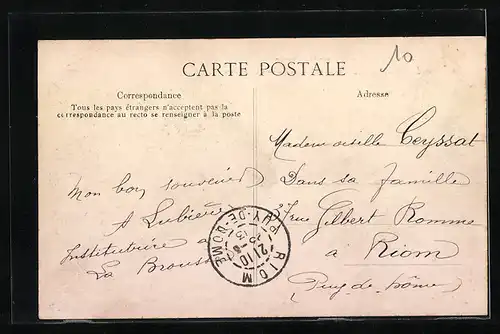 10
CARTE POSTALE
Correspondance
Tous les pays étrangers n'acceptent pas la
correspondance au recto se renseigner à la poste
Mon bon souvenir
Institutrice à
La
Adresse
Mademoiselle Ceyssat
Dans sa famille
37 rue Gilbert Romme
à Riom
Puy-de-Dôme
RIOM
PUY-DE-DOME